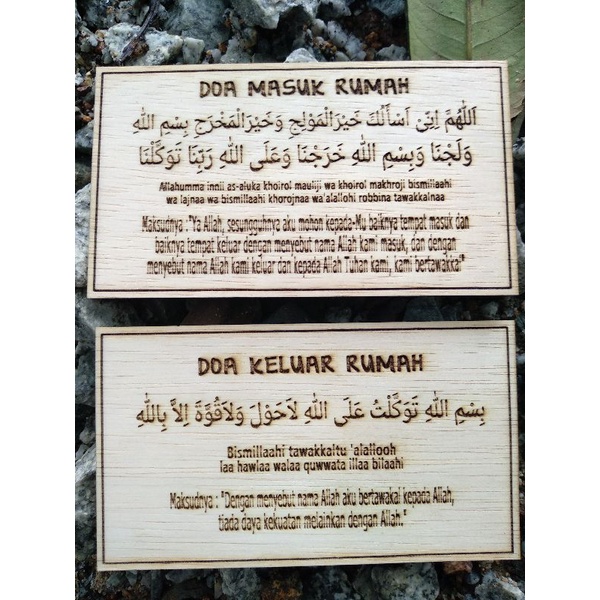 DOA MASUK RUMAH
اَللّٰهُمَّ اِنِّىْ اَسْأَلُكَ خَيْرَالْمَوْلِجِ وَخَيْرَالْمَخْرَجِ بِسْمِ اللهِ
وَلَجْنَا وَبِسْمِ اللهِ خَرَجْنَا وَعَلَى اللهِ رَبِّنَا تَوَكَّلْنَا
Allahumma innii as-aluka khoirol mauliji wa khoirol makhroji bismillaahi
wa lajnaa wa bismillaahi khorojnaa wa'alallohi robbina tawakkalnaa
Maksudnya : "Ya Allah, sesungguhnya aku mohon kepada-Mu baiknya tempat masuk dan
baiknya tempat keluar dengan menyebut nama Allah kami masuk, dan dengan
menyebut nama Allah kami keluar dan kepada Allah Tuhan kami, kami bertawakkal"
DOA KELUAR RUMAH
بِسْمِ اللهِ تَوَكَّلْتُ عَلَى اللهِ لاَحَوْلَ وَلاَقُوَّةَ اِلاَّ بِاللهِ
Bismillaahi tawakkaltu 'alallooh
laa hawlaa walaa quwwata illaa billaahi
Maksudnya : "Dengan menyebut nama Allah aku bertawakal kepada Allah,
tiada daya kekuatan melainkan dengan Allah."